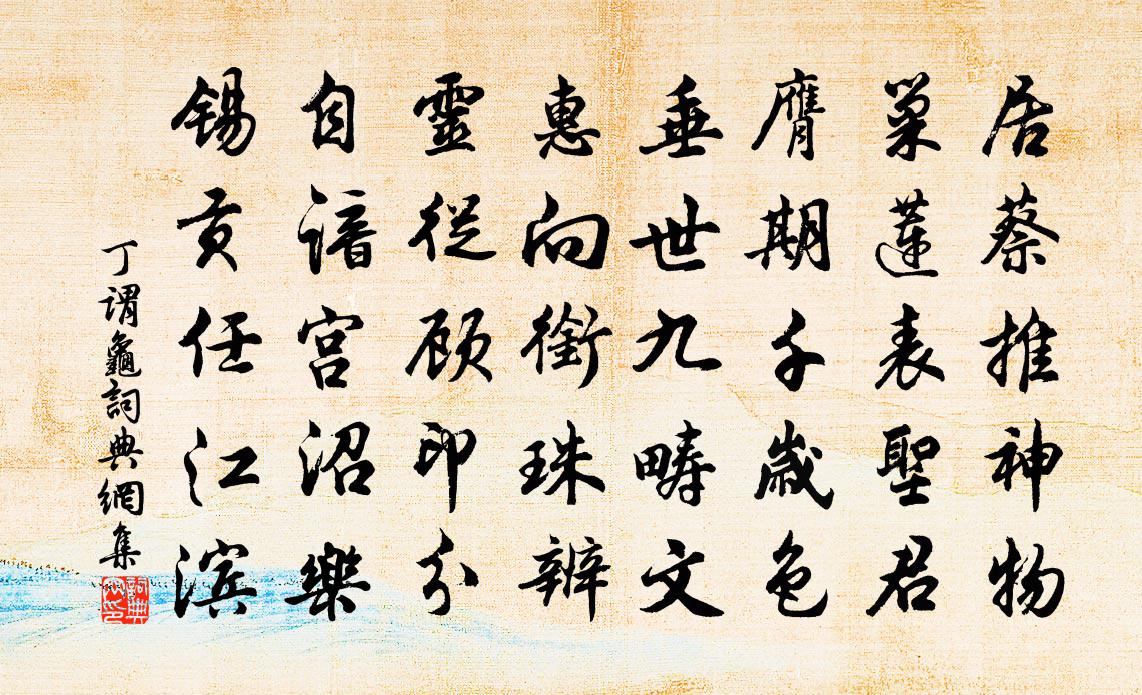 居蔡推神物
巢蓮表聖君
膺期千歲色
垂世九疇文
惠向銜珠辨
靈從顾印分
自諳宮沼樂
锡貢任江滨
丁谓龜詞典網集